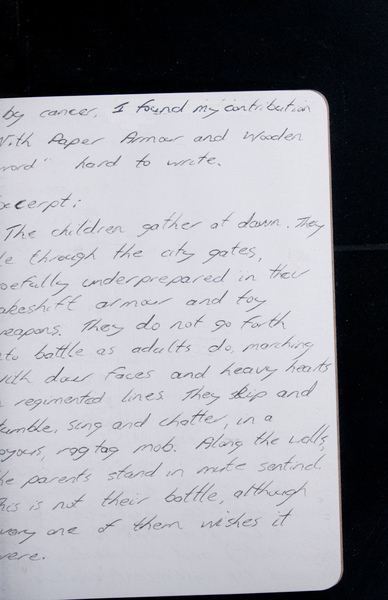 by cancer. I found my contribution
With Paper Armour and Wooden
word" hard to write.
xcerpt:
The children gather at dawn. They
le through the city gates,
oefully underprepared in their
akeshift armour and toy
weapons. They do not go forth
nto battle as adults do, marching
with dour faces and heavy hearts
regimented lines They skip and
tumble, sing and chatter, in a
oyous, rag tag mob. Along the walls,
he parents stand in mute sentinel.
his is not their battle, although
very one of them wishes it
were.